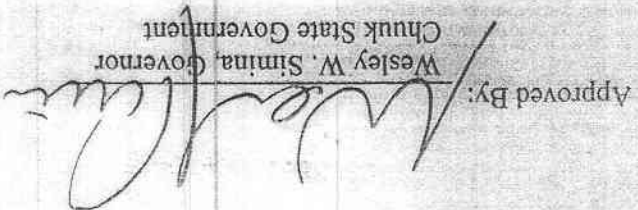 Approved By:
Wesley W. Simina, Governor
Chuuk State Government